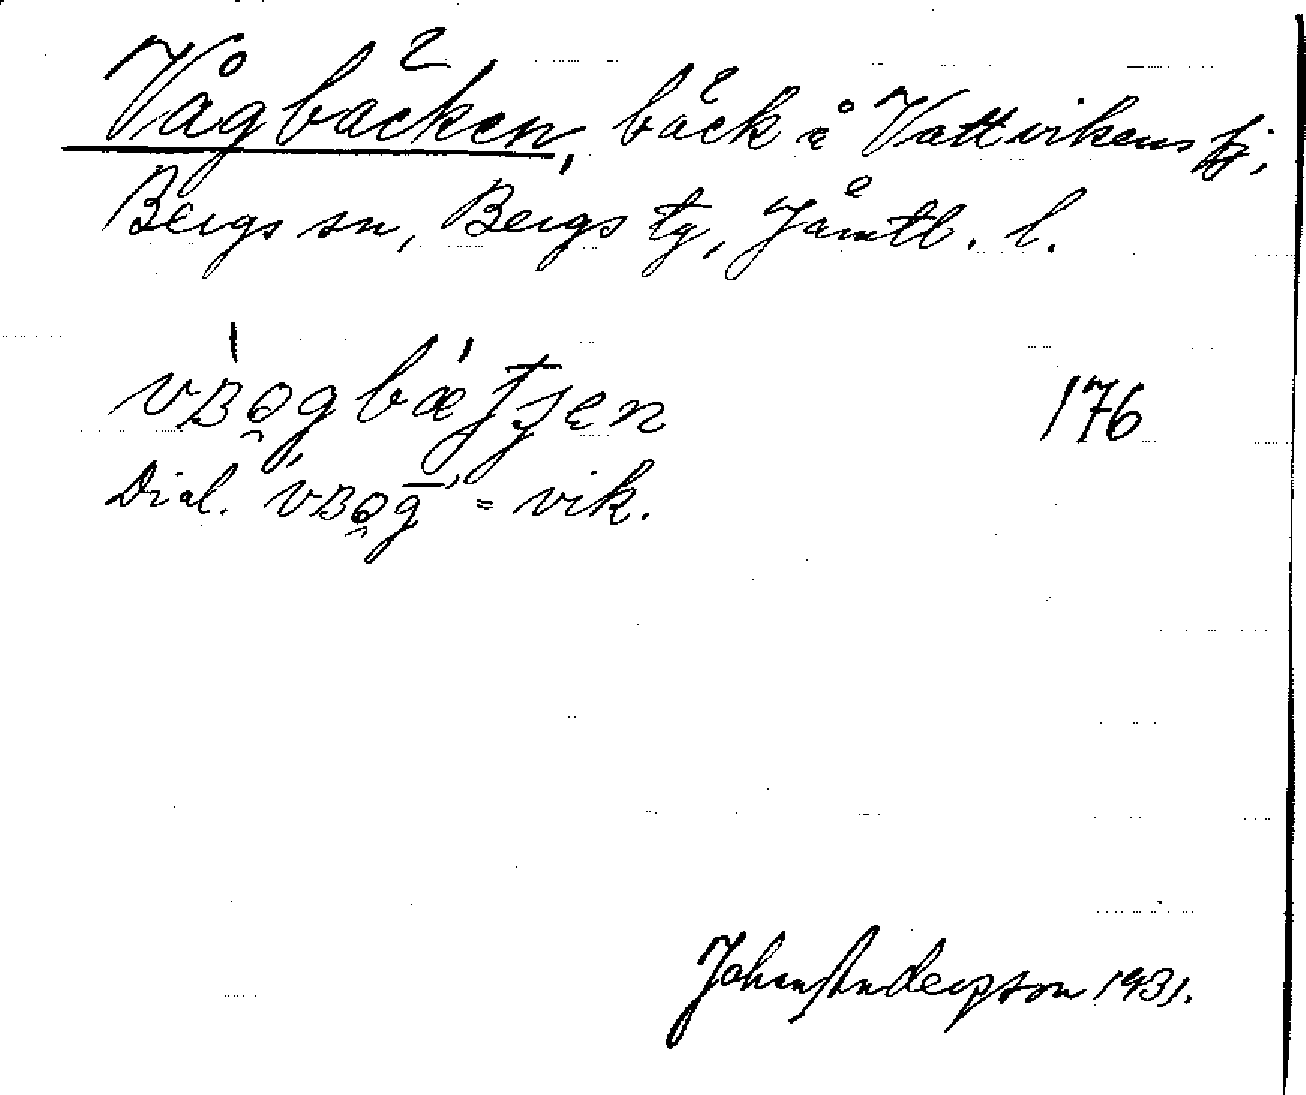 Vågbäcken, bäck å Vattvikens fj,
Bergs sn, Bergs tg, Jämtl. l.
Dial. = vik.
176
Johan Andersson 1931.